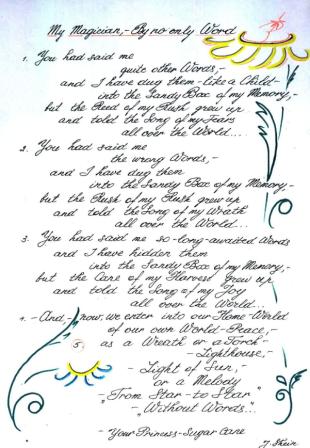 My Magician,- By no only Word
1. You had said me
quite other Words,-
and I have dug them-like a Child-
into the Sandy Box of my Memory,-
but the Reed of my Hush grew up
and toled the Song of my Fears
all over the World...
2. You had said me
the wrong Words,-
and I have dug them
into the Sandy Box of my Memory-
but the Rush of my Hush grew up
and told the Song of my Wrath
all over the World...
3. You had said me so-long-awaited Words
and I have hidden them
into the Sandy Box of my Memory,-
but the Cane of my Harvest grew up
and told the Song of my Joy
all over the World...
4. -And,- now, we enter into our Home-World
of our own World-Peace,-
5. as a Wreath or a Torch-
-Lighthouse,-
-Light of Sun,-
or a Melody
"From Star-to Star"
-"Without Words"...
-Your Princess-Sugar Cane